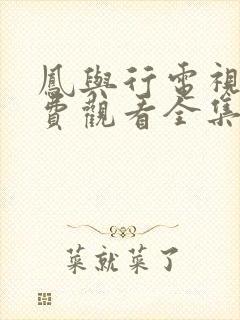 鳳與行電視
費觀看全集
菜就菜了